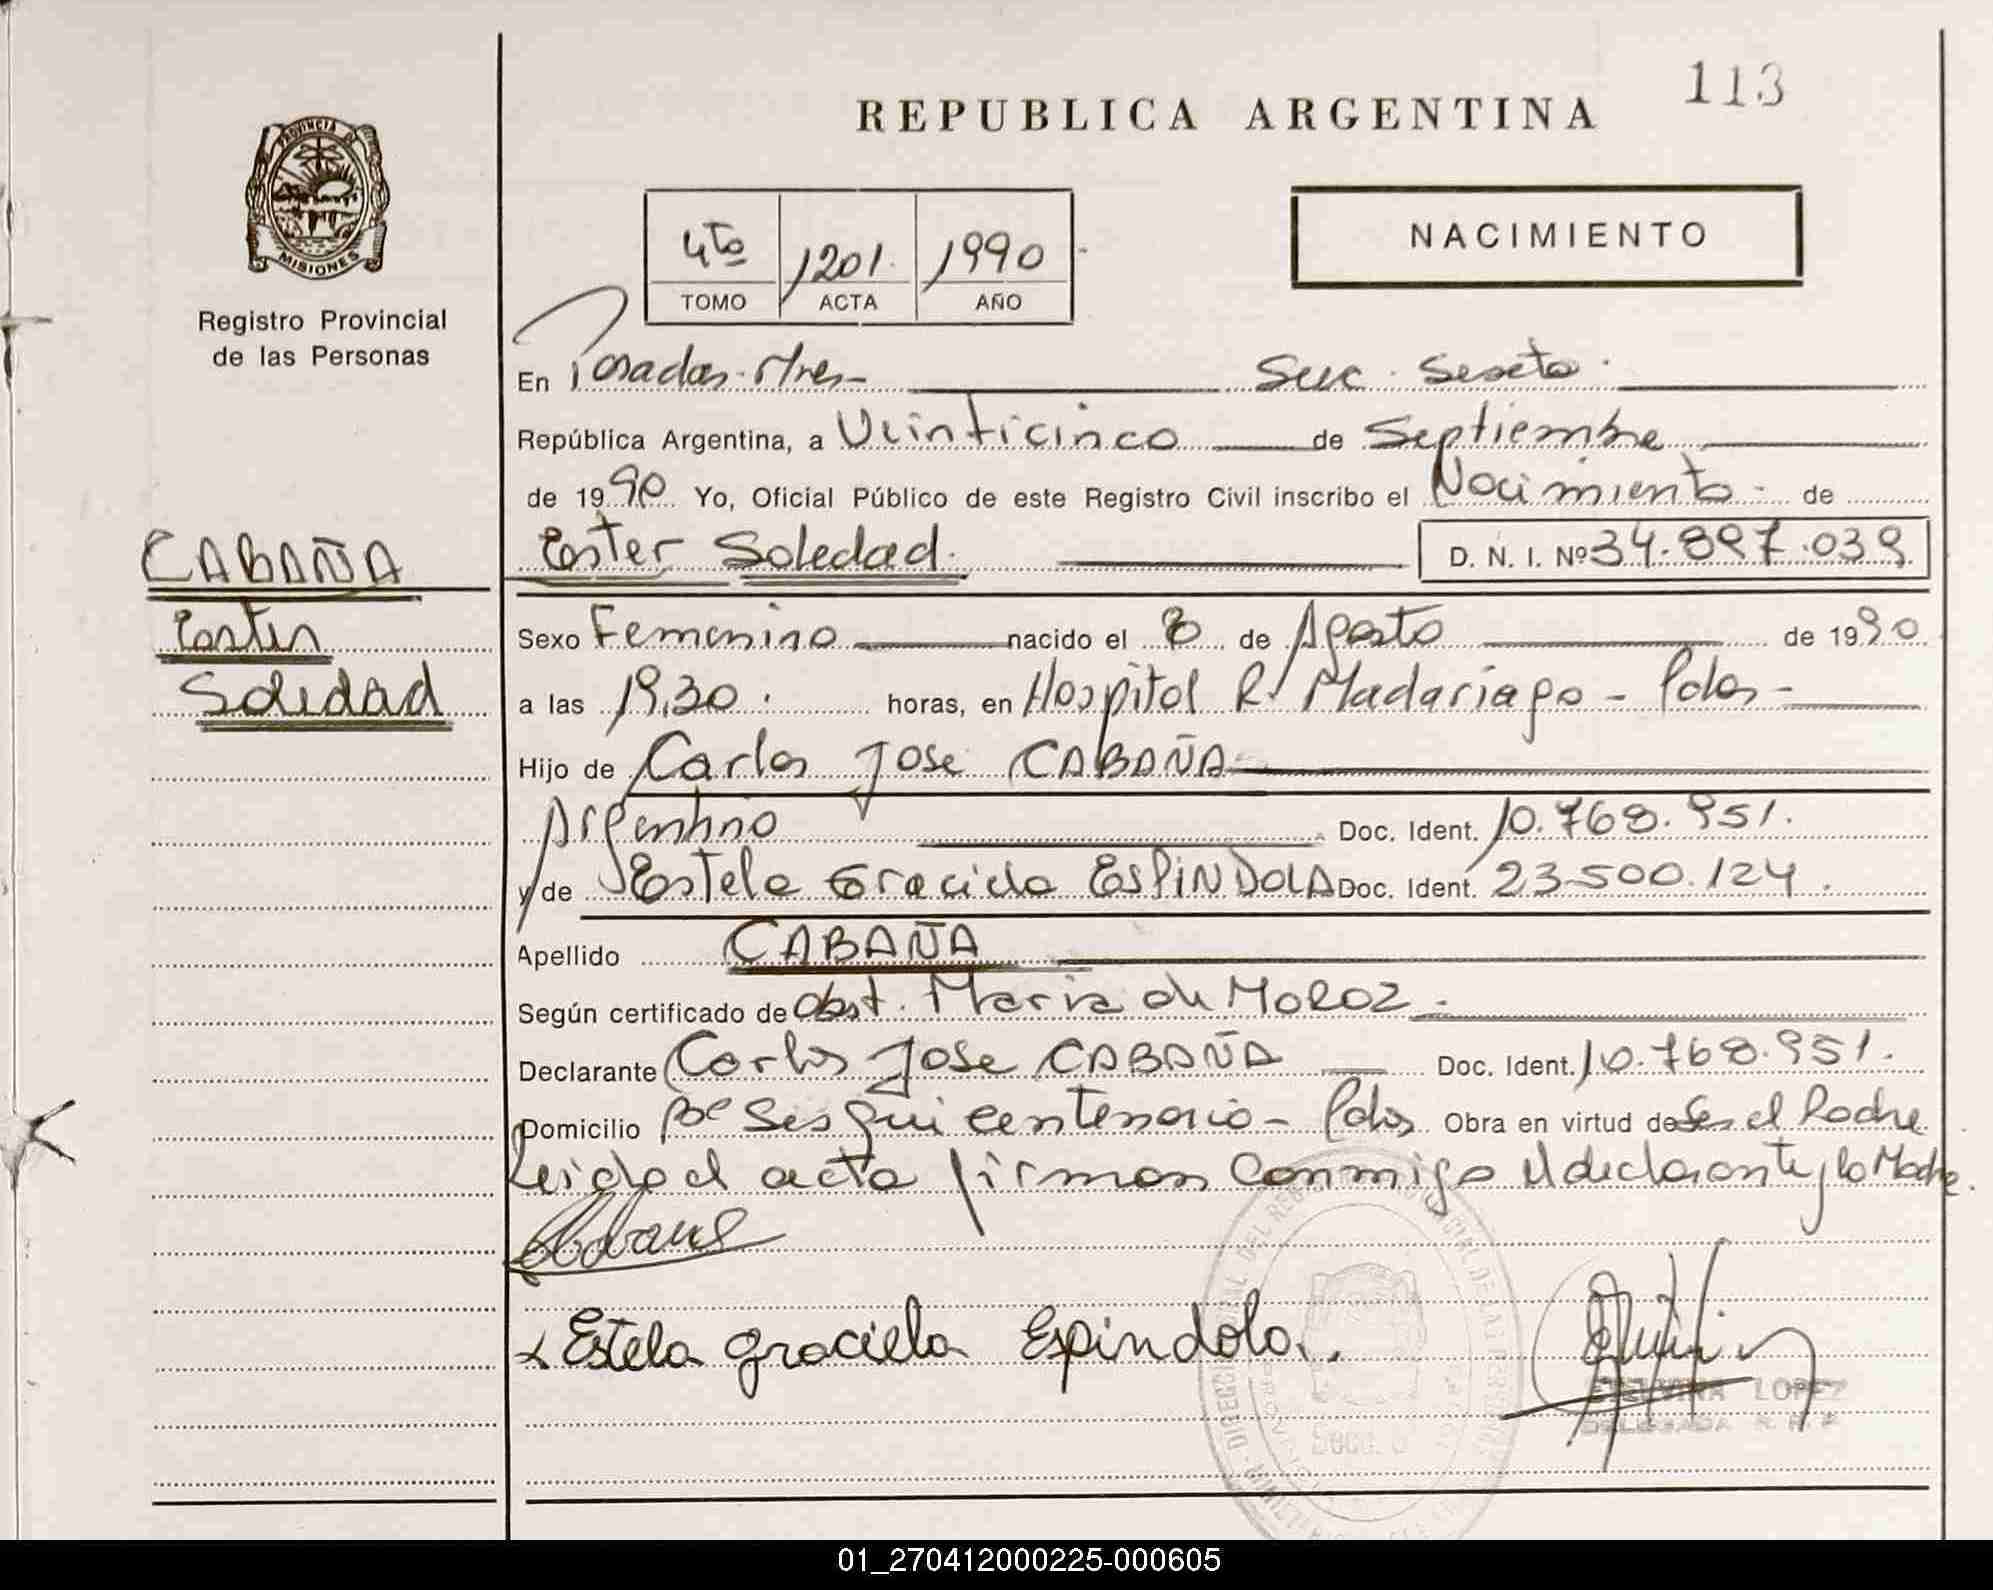 113
REPUBLICA ARGENTINA
PROVINCIA DE
MISIONES
Registro Provincial
de las Personas
4to 1201. 1990
TOMO ACTA AÑO
NACIMIENTO
En Posadas. Mnes- Secc. Sexta.
República Argentina, a Veinticinco de Septiembre
de 1990 Yo, Oficial Público de este Registro Civil inscribo el Nacimiento - de
CABAÑA
Ester
Soledad
Ester Soledad. D. N. I. Nº 34.897.039
Sexo Femenino nacido el 8 de Agosto de 1990
a las 19,30. horas, en Hospital R. Madariaga - Pdas -
Hijo de Carlos Jose CABAÑA
Argentino Doc. Ident. 10.768.951.
y de Estela Graciela ESPINDOLA Doc. Ident. 23.500.124.
Apellido CABAÑA
Según certificado de Obst. Maria de MOROZ -
Declarante Carlos Jose CABAÑA Doc. Ident. 10.768.951.
Domicilio Bº Sesquicentenario - Pdas Obra en virtud de Ser el Padre
Leida el acta firman conmigo el declarante y la Madre.
Estela graciela Espindola.
LOPEZ
DELEGADA R. P. P.
01_270412000225-000605